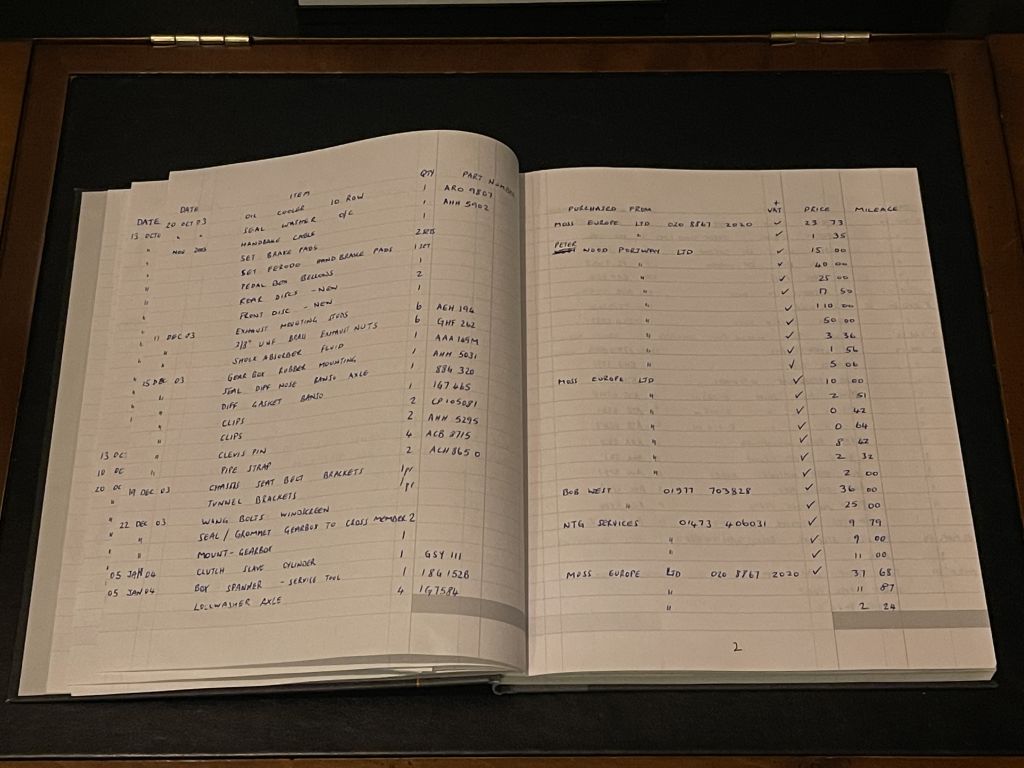 DATE ITEM QTY PART NUMBER
DATE
20 OCT 03 OIL COOLER 10 ROW 1 ARO 9807
" " SEAL WASHER O/C 1 AHH 5902
NOV 2003 HANDBRAKE CABLE 1
SET BRAKE PADS 2 SETS
SET FERODO HANDBRAKE PADS 1 SET
PEDAL BOX BELLOWS 1
REAR DISCS - NEW 2
FRONT DISC - NEW 1
11 DEC 03 EXHAUST MOUNTING STUDS 6 AEH 194
" 3/8" UNF BRASS EXHAUST NUTS 6 GHF 262
" SHOCK ABSORBER FLUID 1 AAA 149M
15 DEC 03 GEAR BOX RUBBER MOUNTING 1 AHH 5031
" SEAL DIFF NOSE BANJO AXLE 1 88G 320
" DIFF GASKET BANJO 1 1G7 465
" CLIPS 2 CP 105081
" CLIPS 2 AHH 5295
" CLEVIS PIN 4 ACB 8715
" PIPE STRAP 2 ACH 8650
19 DEC 03 CHASSIS SEAT BELT BRACKETS 1pr
" TUNNEL BRACKETS 1pr
22 DEC 03 WANG BOLTS WINDSCREEN
" SEAL / GROMMET GEARBOX TO CROSS MEMBER 2
" MOUNT-GEARBOX 1
05 JAN 04 CLUTCH SLAVE CYLINDER 1 GSY 111
05 JAN 04 BOX SPANNER - SERVICE TOOL 1 18G 152B
LOCKWASHER AXLE 4 1G7584
13 OCT 0
13 DC
10 DC
20 DC
PURCHASED FROM + VAT PRICE MILEAGE
MOSS EUROPE LTD 020 8867 2020 ✓ 23 73
" ✓ 1 35
PETER WOOD PORTWAY LTD ✓ 15 00
" ✓ 40 00
" ✓ 25 00
" ✓ 17 50
" ✓ 110 00
" ✓ 50 00
" ✓ 3 36
" ✓ 1 56
" ✓ 5 06
MOSS EUROPE LTD ✓ 10 00
" ✓ 2 51
" ✓ 0 42
" ✓ 0 64
" ✓ 8 42
" ✓ 2 32
" ✓ 2 00
BOB WEST 01977 703828 ✓ 36 00
" ✓ 25 00
NTG SERVICES 01473 406031 ✓ 9 79
" ✓ 9 00
" ✓ 11 00
MOSS EUROPE LTD 020 8867 2020 ✓ 31 68
" 11 87
" 2 24
2